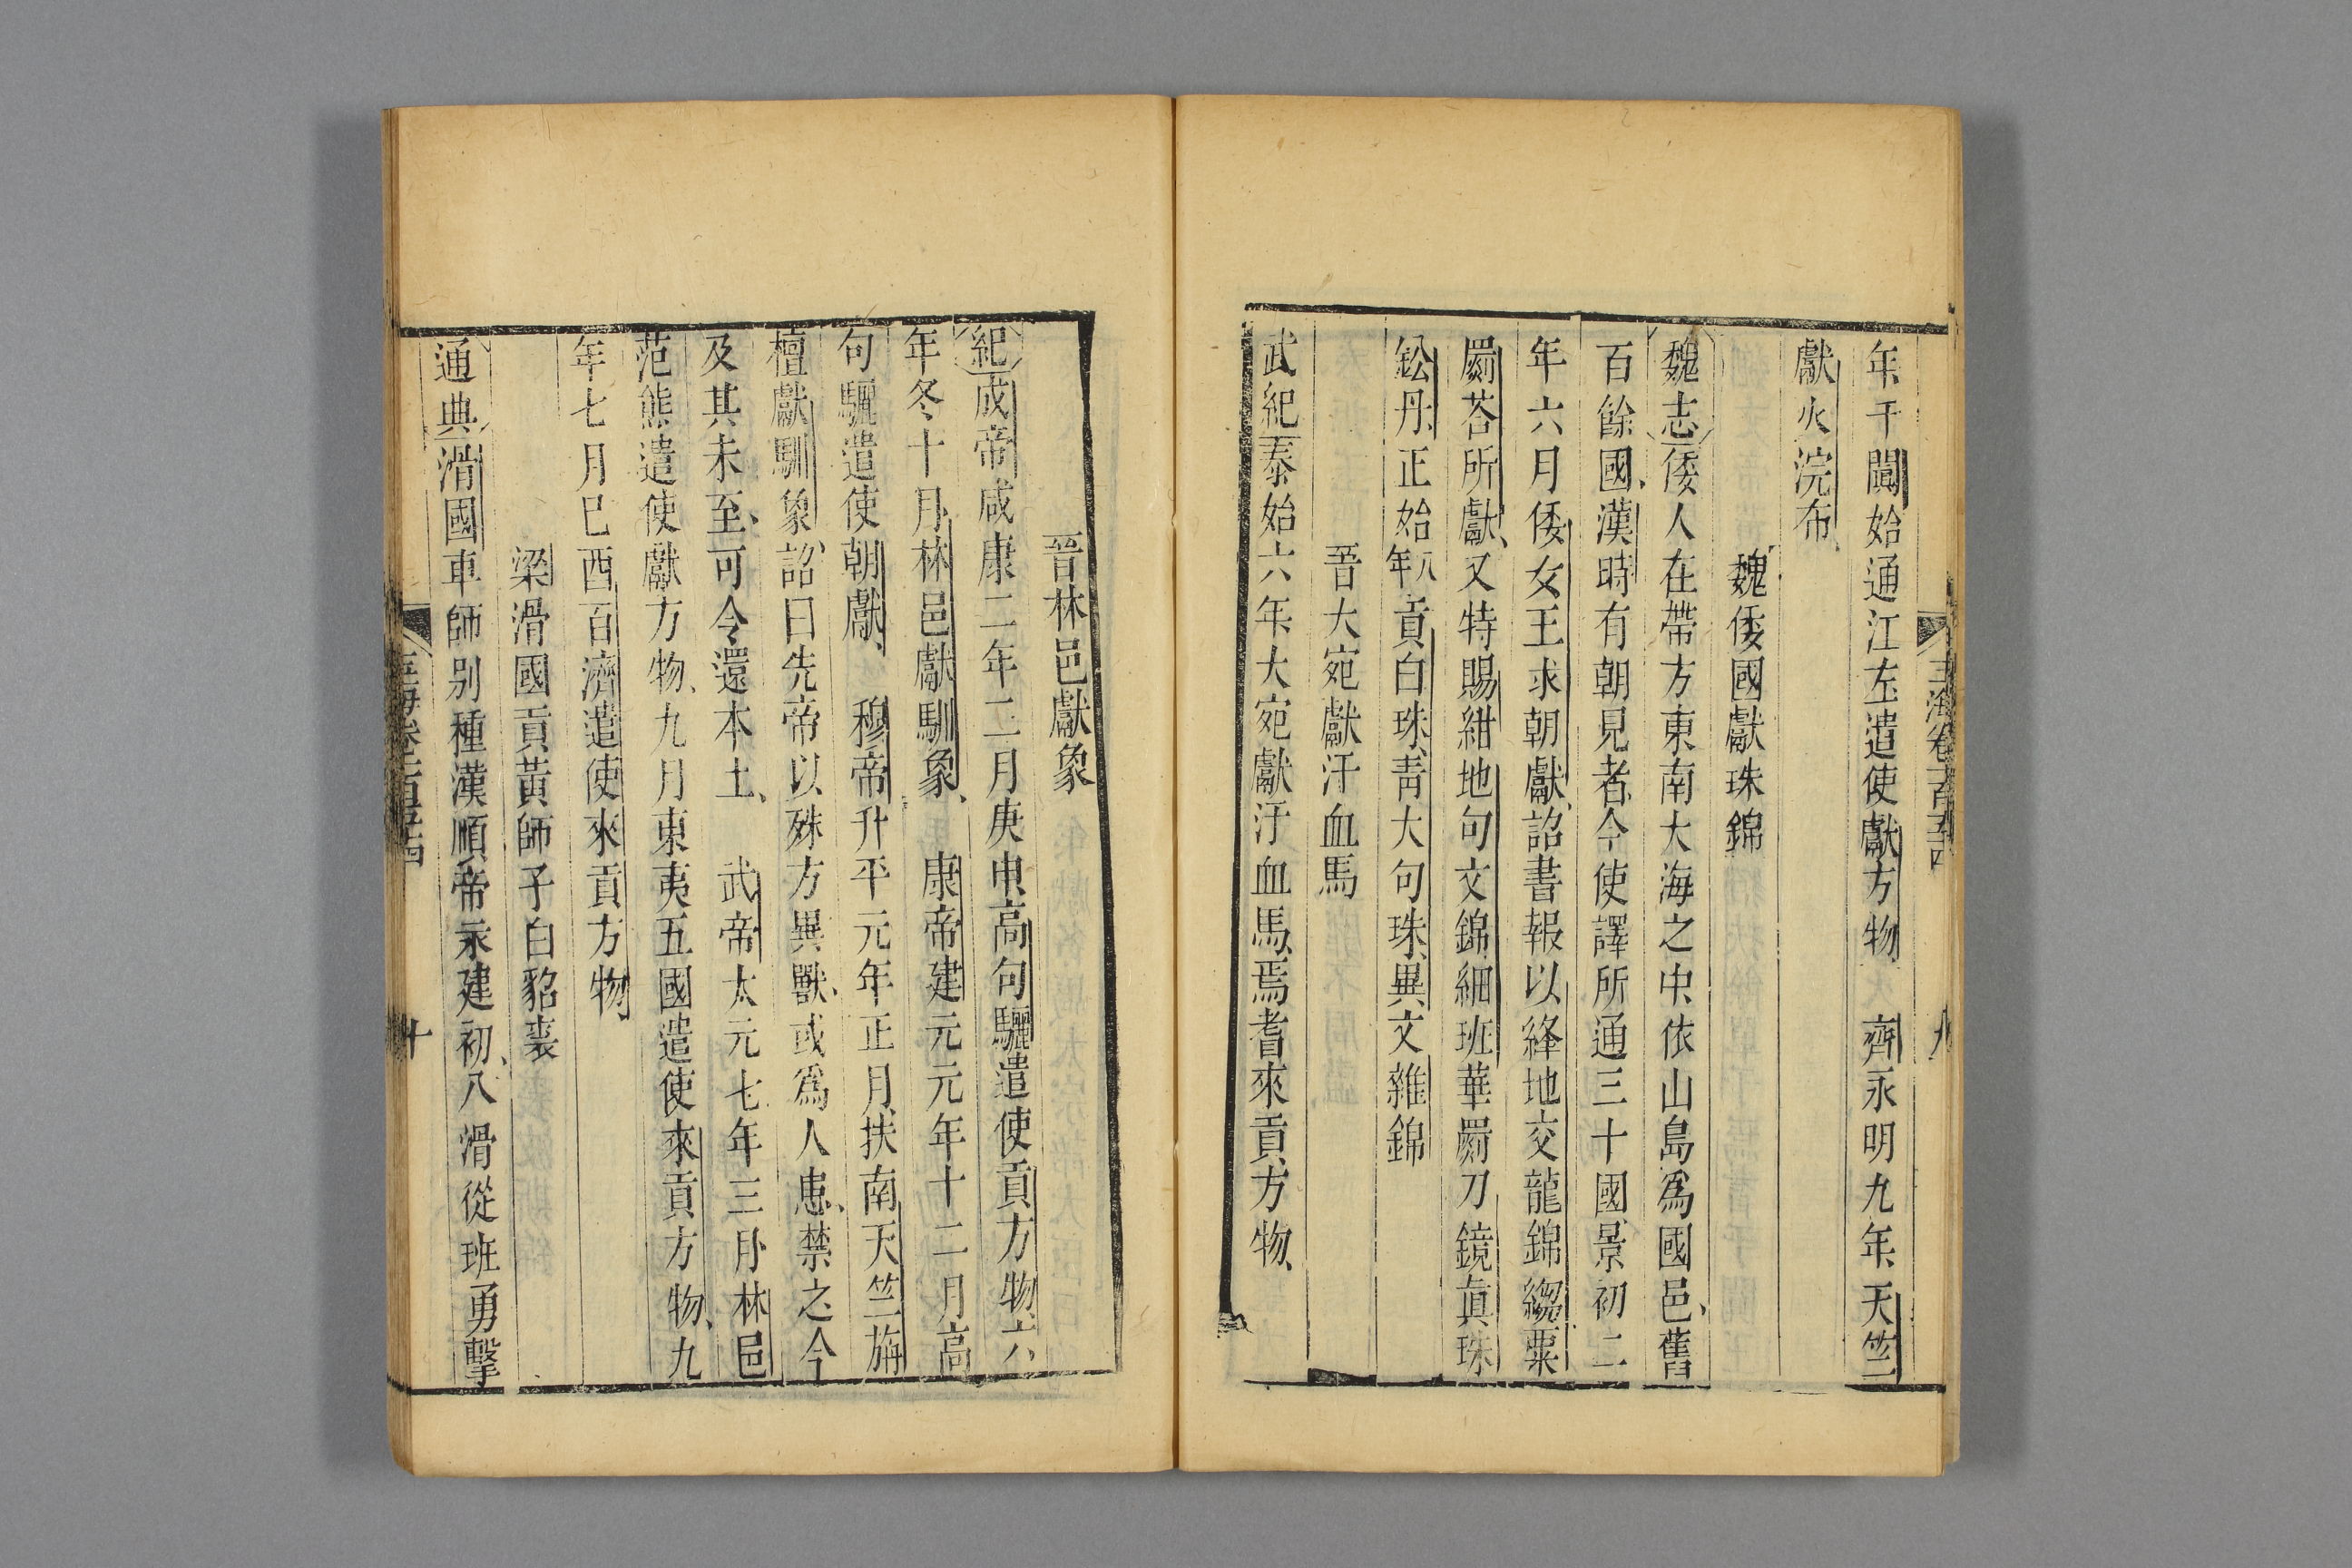 玉海卷一百五十四 九
年于闐始通江左遣使獻方物 齊永明九年天竺
獻火浣布
魏倭國獻珠錦
魏志倭人在帶方東南大海之中依山島為國邑舊
百餘國漢時有朝見者今使譯所通三十國景初二
年六月倭女王求朝獻詔書報以絳地交龍錦縐粟
罽荅所獻又特賜紺地句文錦細班華罽刀鏡眞珠
鈆丹正始八年貢白珠靑大句珠異文雜錦
晉大宛獻汗血馬
武紀泰始六年大宛獻汗血馬焉耆來貢方物
晉林邑獻象
紀成帝咸康二年二月庚申高句驪遣使貢方物六
年冬十月林邑獻馴象 康帝建元元年十二月高
句驪遣使朝獻 穆帝升平元年正月扶南天竺旃
檀獻馴象詔曰先帝以殊方異獸或為人患禁之今
及其未至可令還本土 武帝太元七年三月林邑
范熊遣使獻方物九月東夷五國遣使來貢方物九
年七月巳酉百濟遣使來貢方物
梁滑國貢黃師子白貂裘
通典滑國車師别種漢順帝永建初八滑從班勇擊
玉海卷一百五十四 十